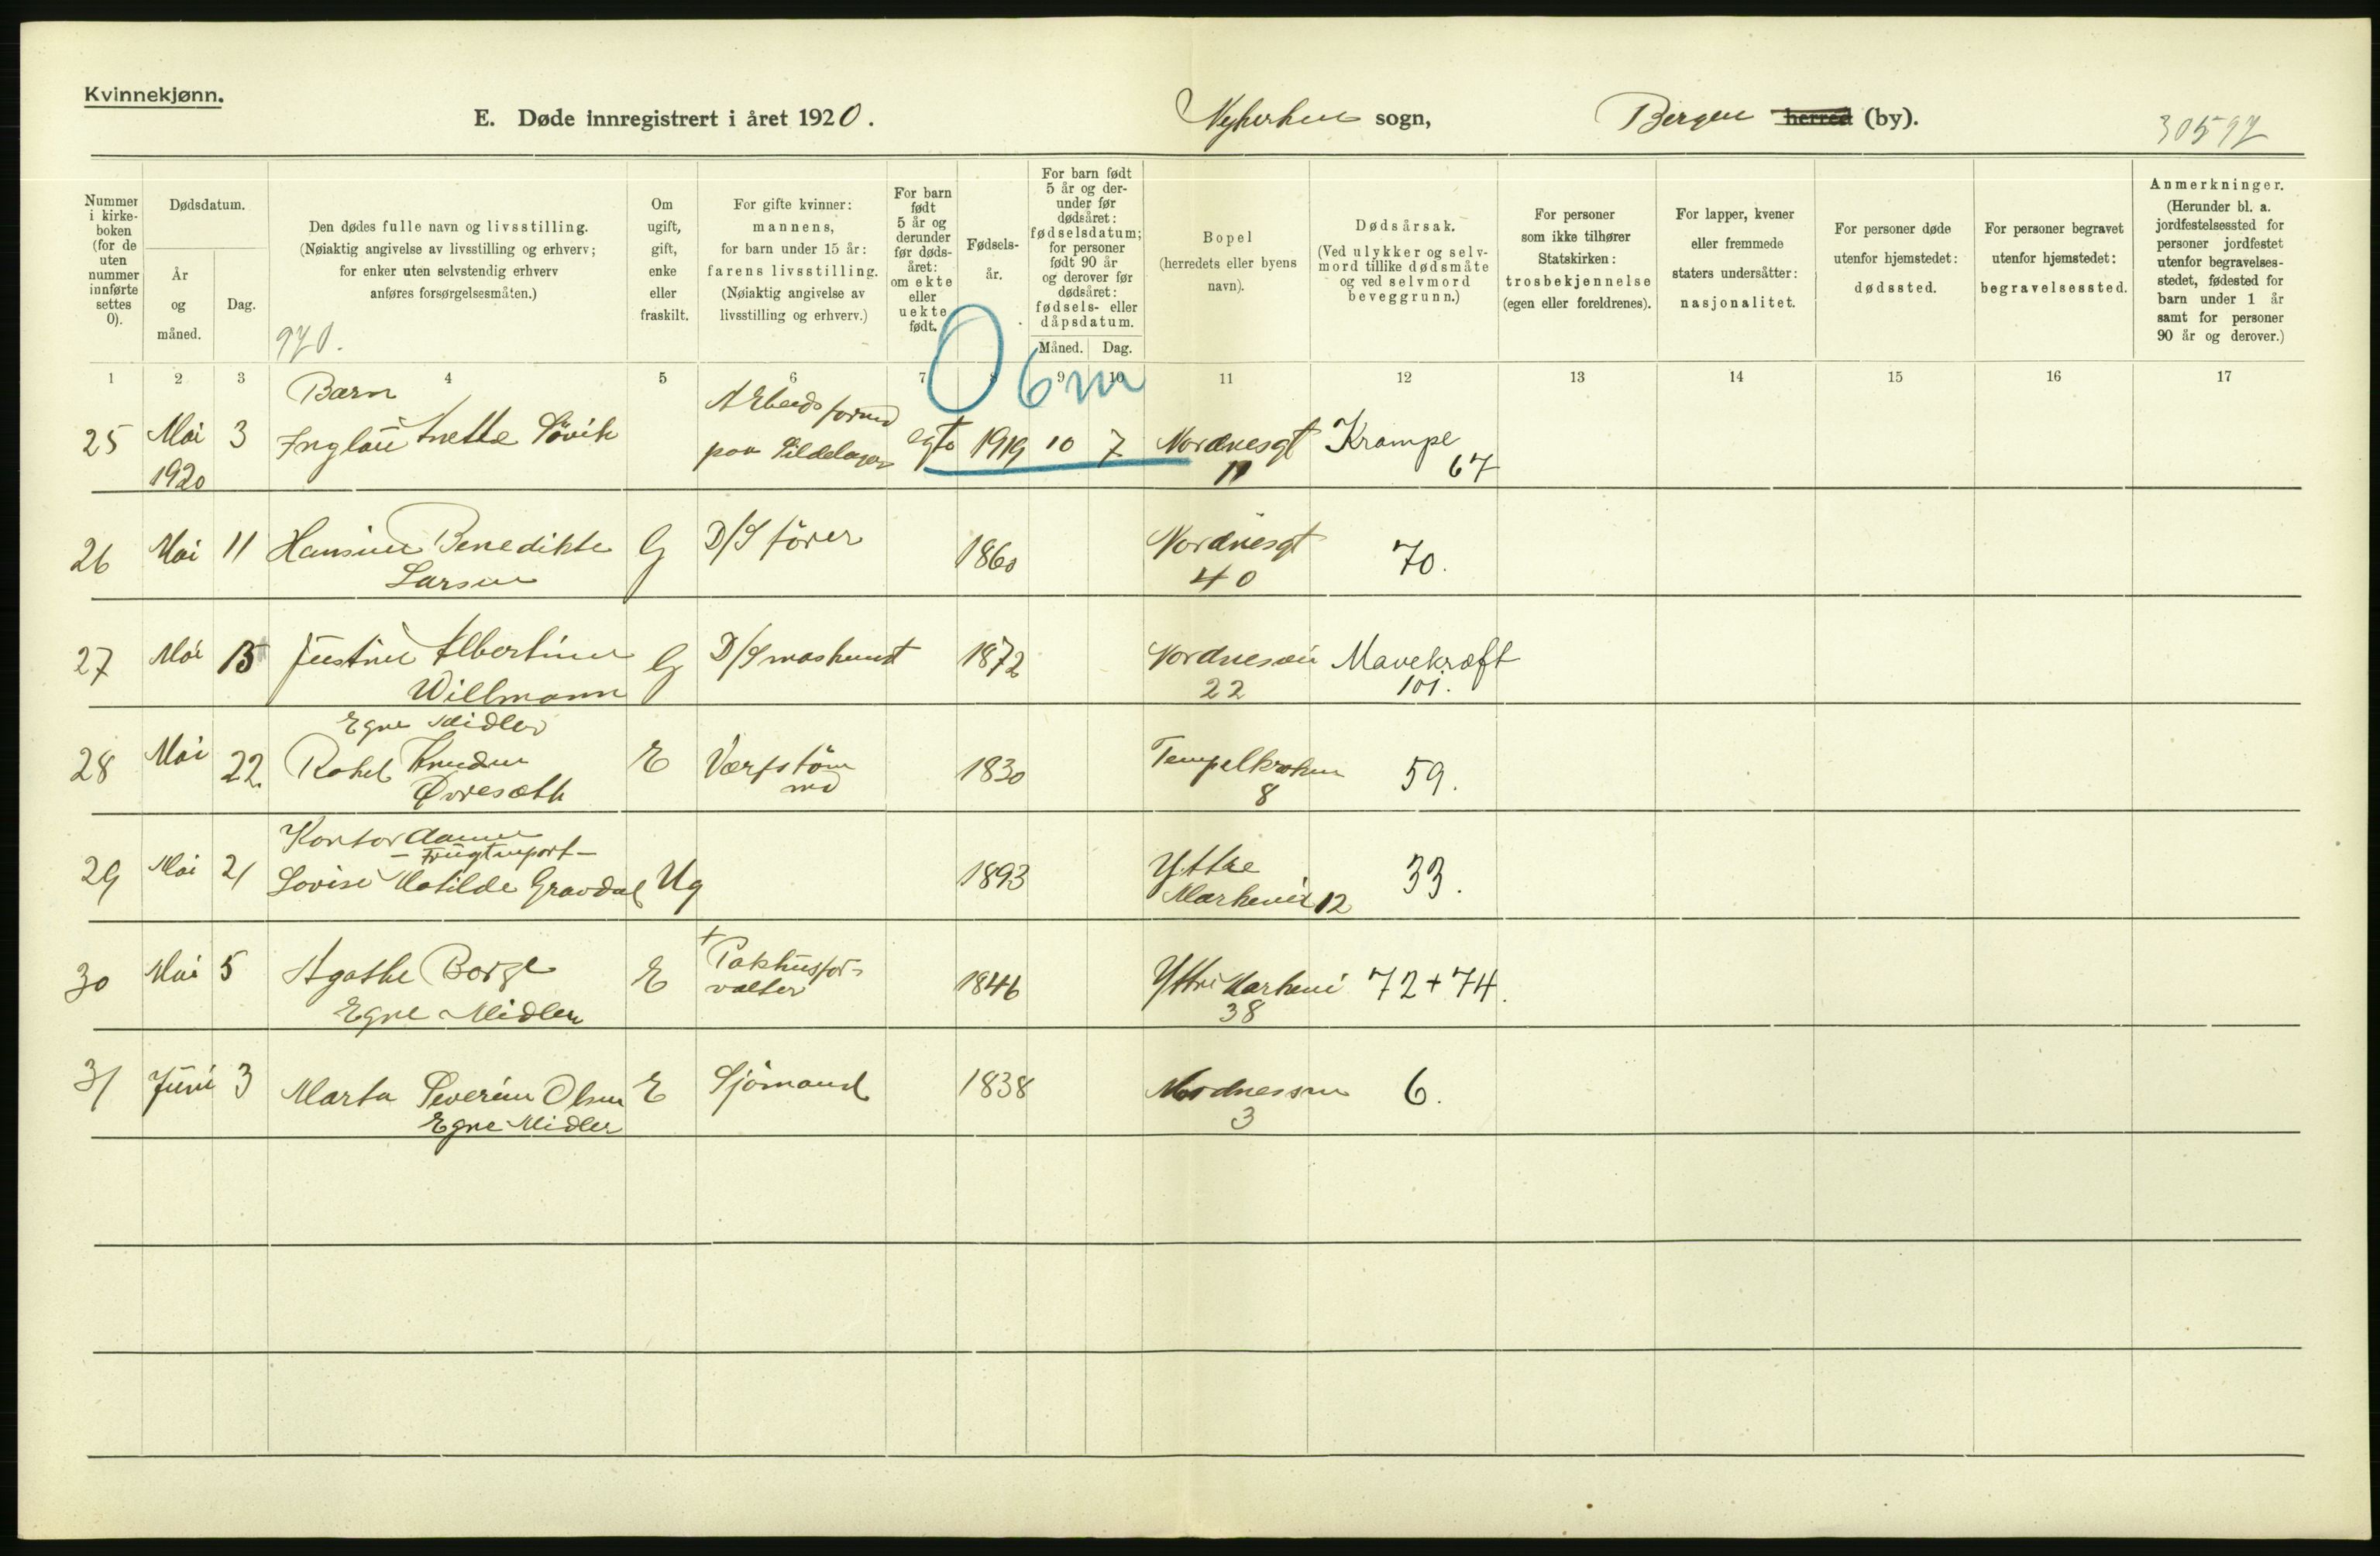 Kvinnekjønn.
E. Døde innregistrert i året 1920.
Nykirken sogn,
Bergen herred (by).
30597
Nummer i kirkeboken (for de uten nummer innførte settes 0).
Dødsdatum.
År og måned.
Dag.
Den dødes fulle navn og livsstilling.
(Nøiaktig angivelse av livsstilling og erhverv;
for enker uten selvstendig erhverv
anføres forsørgelsesmåten.)
970.
Om ugift, gift, enke eller fraskilt.
For gifte kvinner:
mannens,
for barn under 15 år:
farens livsstilling.
(Nøiaktig angivelse av
livsstilling og erhverv.)
For barn født 5 år og derunder før dødsåret: om ekte eller uekte født.
Fødselsår.
For barn født 5 år og derunder før dødsåret: fødselsdatum; for personer født 90 år og derover før dødsåret: fødsels- eller dåpsdatum.
Måned. Dag.
Bopel
(herredets eller byens
navn).
Dødsårsak.
(Ved ulykker og selvmord tillike dødsmåte og ved selvmord beveggrunn.)
For personer
som ikke tilhører
Statskirken:
trosbekjennelse
(egen eller foreldrenes).
For lapper, kvener
eller fremmede
staters undersåtter:
nasjonalitet.
For personer døde
utenfor hjemstedet:
dødssted.
For personer begravet
utenfor hjemstedet:
begravelsessted.
Anmerkninger.
(Herunder bl. a.
jordfestelsessted for
personer jordfestet
utenfor begravelsesstedet, fødested for
barn under 1 år
samt for personer
90 år og derover.)
1 2 3 4 5 6 7 8 9 10 11 12 13 14 15 16 17
0 6m
Barn
25 Mai 3 Anette Søvik Arbeidsformd egte 1919 10 7 Nordnesgt Krampe
1920 paa Sildelager 11 67
26 Mai 11 Hansine Benedikte G D/S förer 1860 Nordnesgt 70.
Larsen 40
27 Mai 15 Justine Albertine G D/S maskinist 1872 Mavekræft
Willmann 22 101.
Egne Midler
28 Mai 22. Rakel Knudsen E 1830 59.
Øvresæth 8
Kontordame
— Frugtimport —
29 Mai 21 Lovise Matilde Gravdal Ug 1893 Yttre 33.
Markevei 12
30 Mai 5 Agathe Borge E + Pakhusforvalter 1846 Yttre Markevei 72+74.
Egne Midler 38
31 Juni 3 Marta Severine Olsen E Sjömand 1838 6.
Egne Midler 3